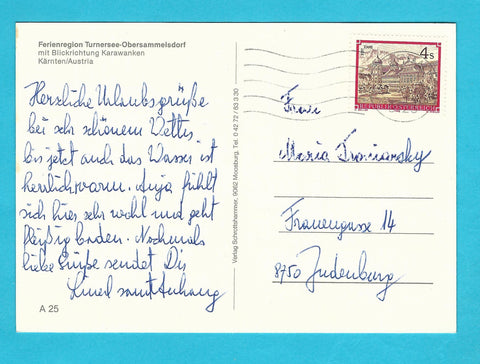 Ferienregion Turnersee-Obersammelsdorf
mit Blickrichtung Karawanken
Kärnten/Austria
Herzliche Urlaubsgrüße
bei sehr schönem Wetter
bis jetzt auch das Wasser ist
herrlich warm. Anja fühlt
sich hier sehr wohl und geht
fleißig baden. Nochmals
liebe Grüße sendet Dir
samt Anhang
A 25
Verlag Schrottshammer, 9062 Moosburg, Tel. 0 42 72 / 83 3 30
4 S
REPUBLIK ÖSTERREICH
Frau
Maria
Frauengasse 14
8750 Judenburg